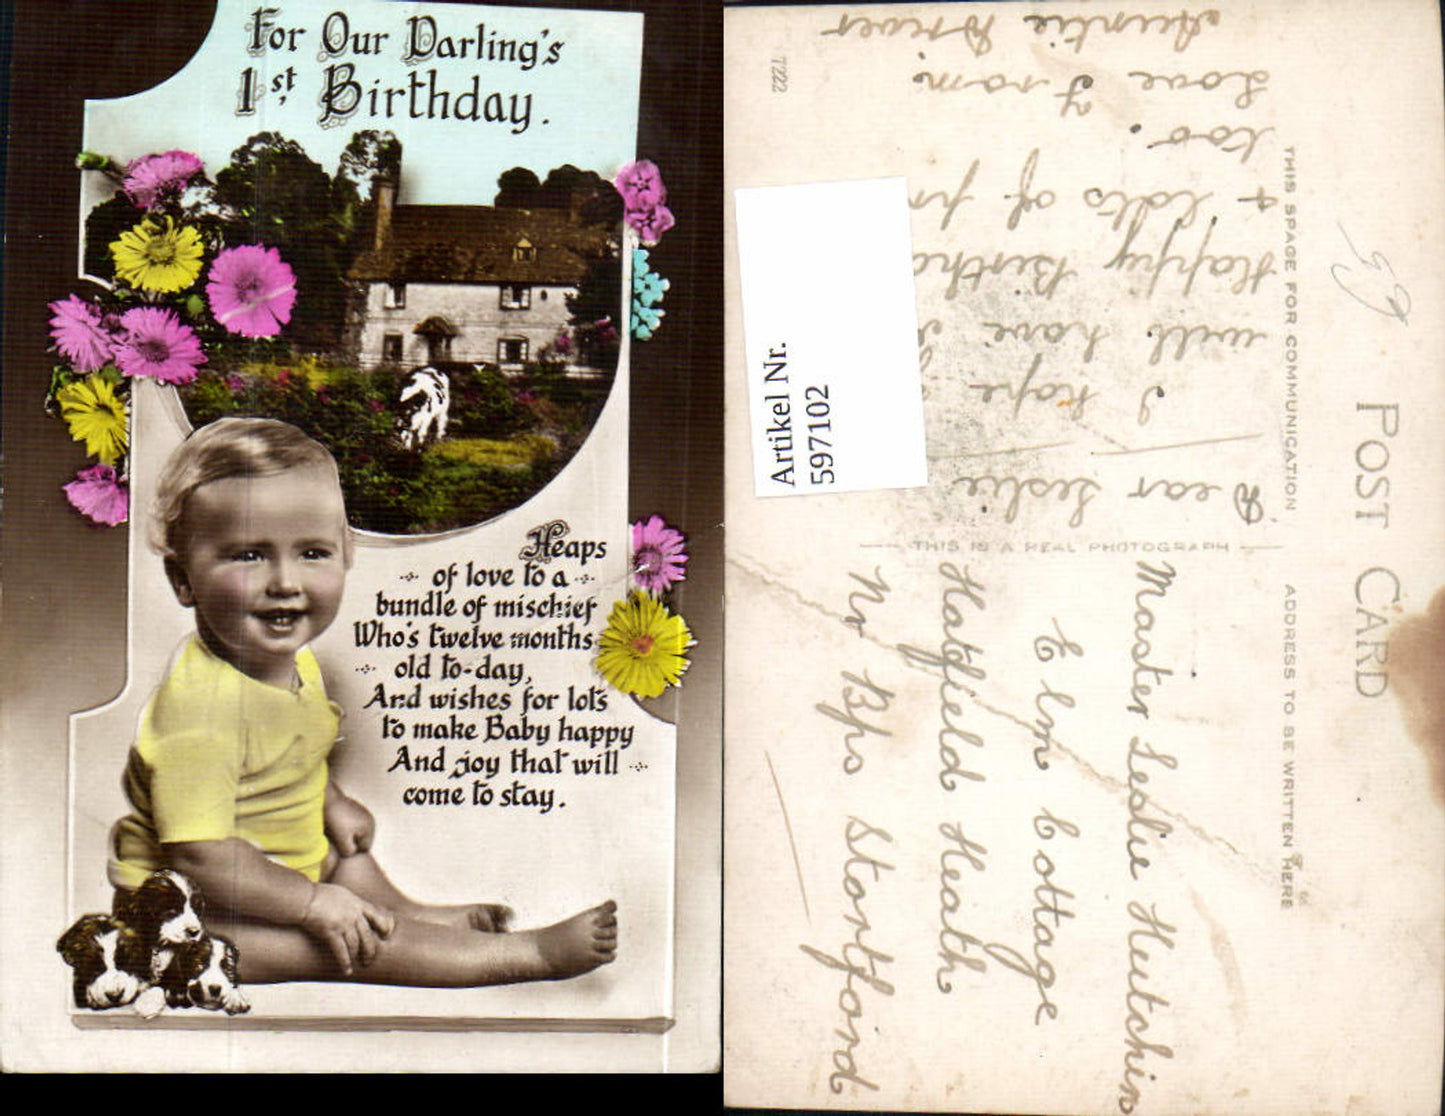 For Our Darling's
1st Birthday.
Heaps
of love to a
bundle of mischief
Who's twelve months
old to-day,
And wishes for lots
to make Baby happy
And joy that will
come to stay.
7222
Artikel Nr.
597102
POST CARD
THIS SPACE FOR COMMUNICATION
ADDRESS TO BE WRITTEN HERE
THIS IS A REAL PHOTOGRAPH
Dear Leslie
I hope
will have
Happy Birthd
+ lots of
too.
Love From
Auntie
Master Leslie Hutchin
Elm Cottage
Hatfield Heath
Nr Bps Stortford